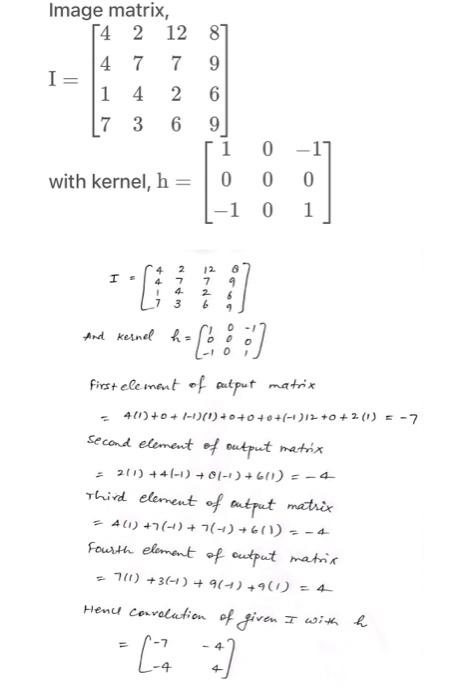 Image matrix,
I = [4 2 12 8
4 7 7 9
1 4 2 6
7 3 6 9]
with kernel, h = [1 0 −1
0 0 0
−1 0 1]
I = [4 2 12 8
4 7 7 9
1 4 2 6
7 3 6 9]
And kernel h = [1 0 -1
0 0 0
-1 0 1]
First element of output matrix
= 4(1)+0+(-1)(1)+0+0+0+(-1)12+0+2(1) = -7
Second element of output matrix
= 2(1)+4(-1)+8(-1)+6(1) = -4
Third element of output matrix
= 4(1)+7(-1)+7(-1)+6(1) = -4
Fourth element of output matrix
= 7(1)+3(-1)+9(-1)+9(1) = 4
Hence convolution of given I with h
= [-7 -4
-4 4]